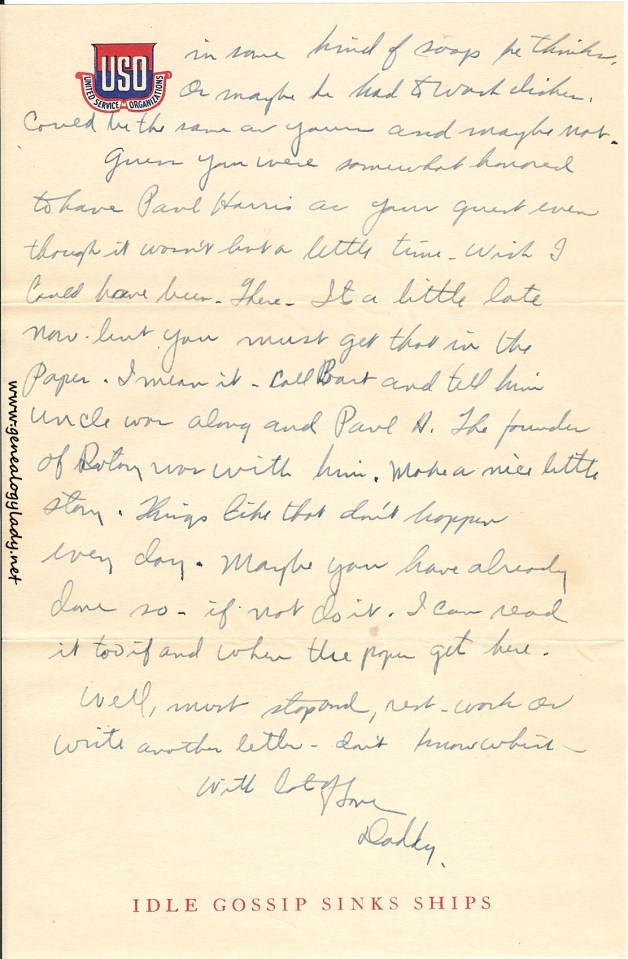 USO
UNITED SERVICE ORGANIZATIONS
in some kind of soap he thinks.
Or maybe he had to wash dishes.
Could be the same as yours and maybe not.
Guess you were somewhat honored
to have Paul Harris as your guest even
though it wasn't but a little time - Wish I
Could have been. There - It a little late
now. but you must get that in the
Paper. I mean it - Call Bart and tell him
Uncle was along and Paul H. The founder
of Rotary was with him. Make a nice little
story. Things like that don't happen
every day. Maybe you have already
done so - if not do it. I can read
it too if and when the paper get here.
Well, must stop and, rest - work or
write another letter - don't know which -
With lots of love
Daddy.
IDLE GOSSIP SINKS SHIPS
www.genealogylady.net